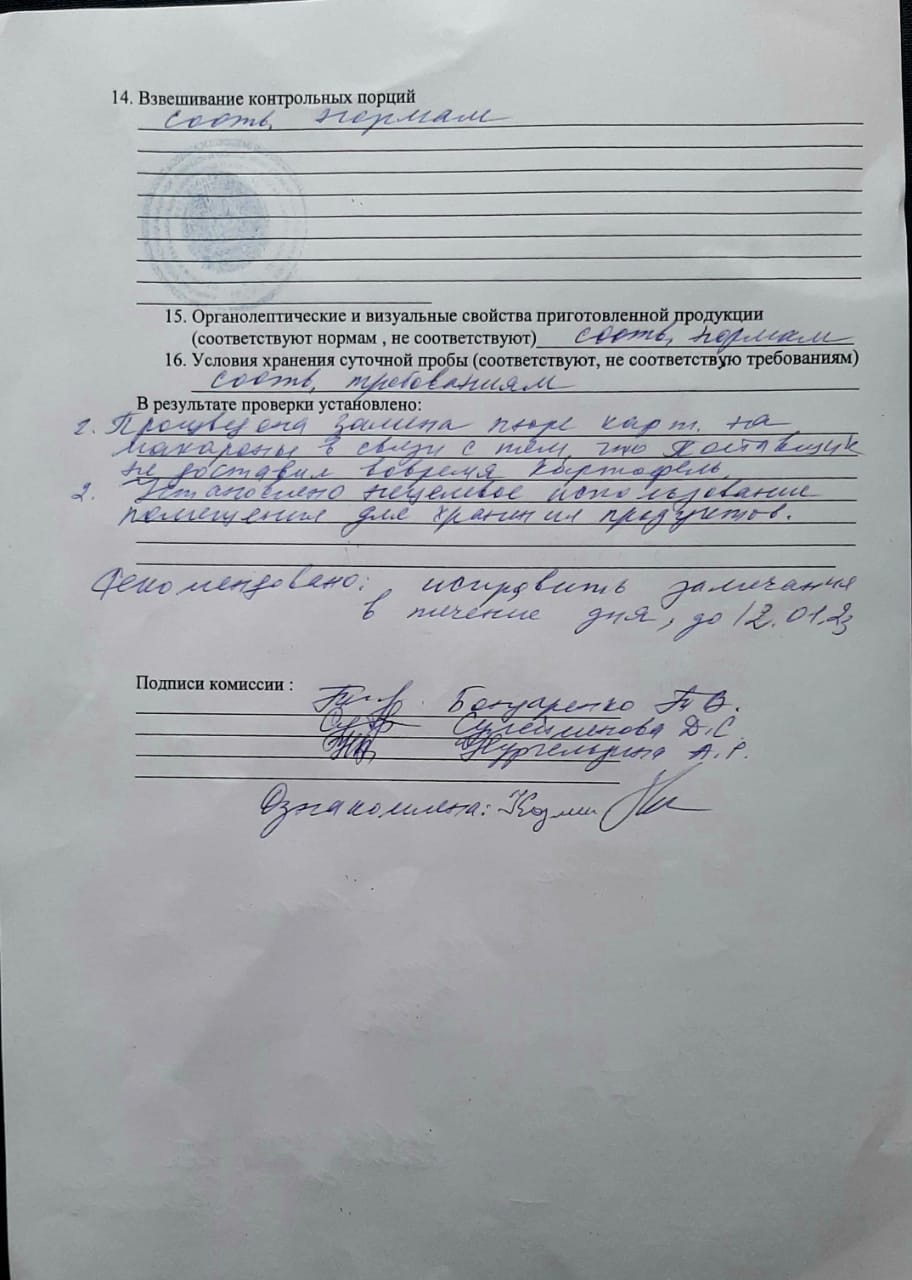 14. Взвешивание контрольных порций
соотв. нормам
15. Органолептические и визуальные свойства приготовленной продукции
(соответствуют нормам , не соответствуют) соотв. нормам
16. Условия хранения суточной пробы (соответствуют, не соответствую требованиям)
соотв. требованиям
В результате проверки установлено:
1. Произведена замена пюре карт. на
макароны в связи с тем, что поставщик
не доставил вовремя картофель.
2. Установлено нецелевое использование
помещения для хранния продуктов.
Рекомендовано: исправить замечания
в течение дня, до 12.01.23
Подписи комиссии :
Бондаренко Т.В.
Д.С.
А.Р.
Ознакомлена: